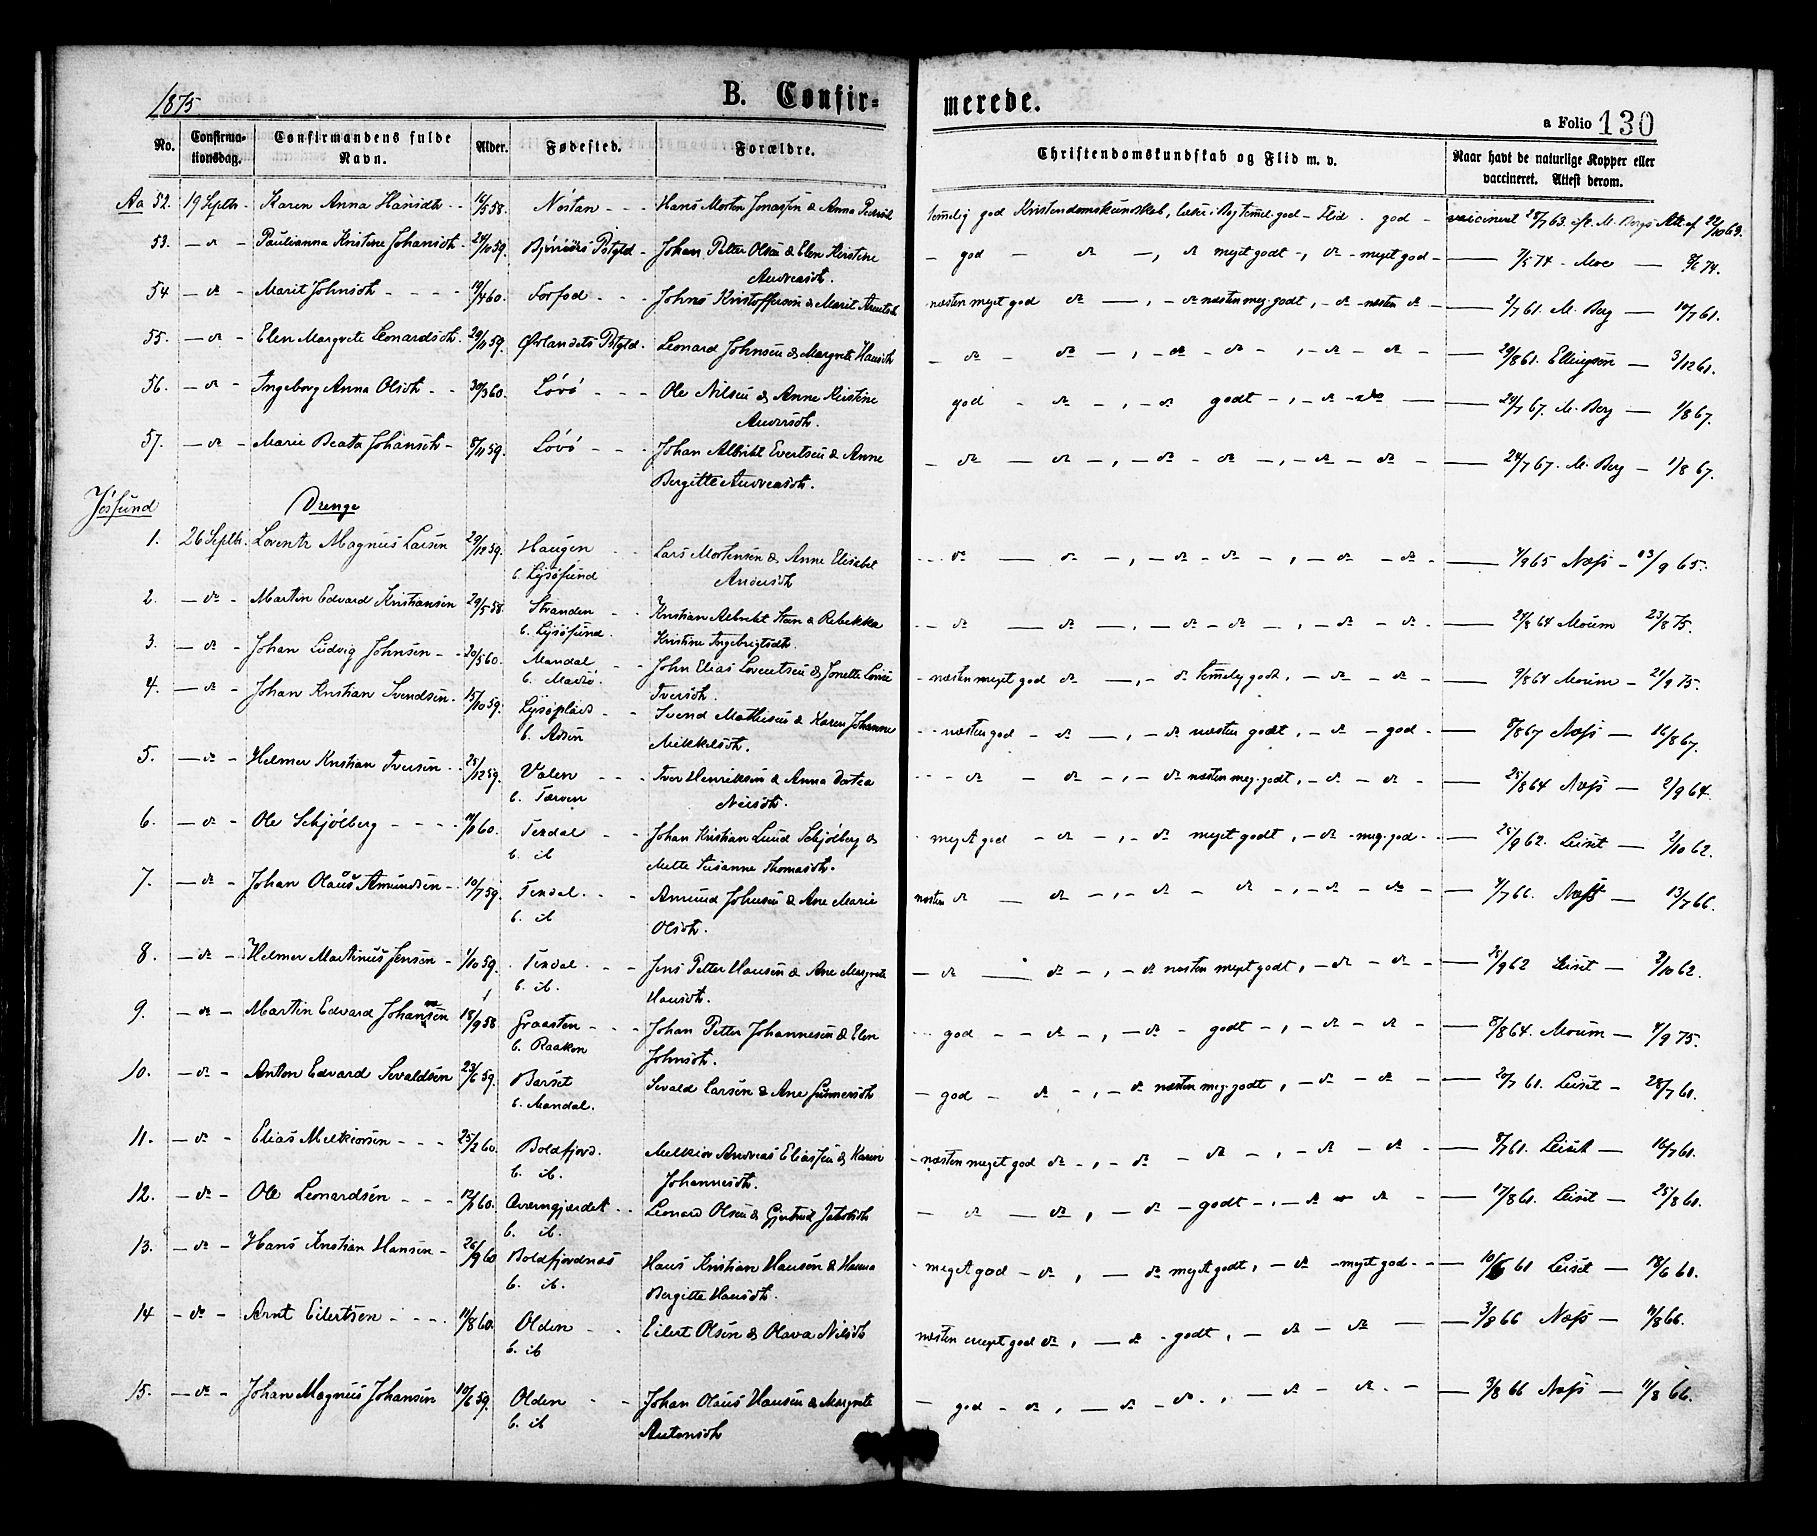 1875
B. Confir=
merede.
a Folio 130
No. Confirma-tionsdag. Confirmandens fulde Navn. Alder. Fødested. Forældre. Christendomskundskab og Flid m. v. Naar havt de naturlige Kopper eller vaccineret. Attest derom.
Aa 52. 19 Septbr - Karen Anna Hansdtr - - 58. Nøstan - - - Hans Morten Jonassen & Anna temelig god Kristendomskundskab, - Flid god - vaccineret 63. M. Bergs Att. af 22/10 63.
53. - do - Paulianna Kristine Johansdtr - 59. Bjørnørs Pstgld - Johan Petter Olsen & Elen Kirstine - god - do - , do meget godt - , do - meget god - 7/5 74 - Moe - 74.
Andreasdtr.
54 - do - Marit Johnsdtr - - - - 60. Forfod - - - Johns Kristoffersen & Marit næsten meget god do - , - do næsten meg. godt, - do - næsten do - 61. M. Berg - 61.
55. - do - Elen Margrete Leonardsdtr. 20/11 59. Ørlandets Pstgld. Leonard Johnsen & Margrete Hansdtr - do - do - , - do - do - , - do - do - 29/8 61. Ellingsen - 3/12 61.
56. - do - Ingeborg Anna Olsdtr - - 30/3 60. Løvø - - - Ole Nilsen & Anne Kirstine god - do - , - do godt - , - do - do - 24/7 67. M. Berg - 1/8 67.
Andersdtr.
57. - do - Marie Beata Johansdtr - 8/11 59. Løvø - - - Johan Albrikt Evertsen & Anne - do - do - , - do - do - , - do - do - 24/7 67. M. Berg - 1/8 67.
Bergitte Andreasdtr.
Jøsund Drenge
1. 26 Septbr. Lorentz Magnus Larsen 29/12 59. Haugen - - Lars Mortensen & Anne Elisabet - do - do - , - do - do - , - do - do - 4/9 65 Næss - 13/9 65.
b. Lysøsund Andersdtr
2. - do - Martin Edvard Kristiansen 29/5 58. Stranden - - Kristian Albrikt Steen & Rebekka - do - do - , - do - do - , - do - do - 64 Moum 23/8 75.
b. Lysøsund. Kristine Ingebrigtsdtr.
3. - do - Johan Ludvig Johnsen - - 20/5 60. Mandal - - John Elias Lorentsen & Jonette Lovise - næsten meget god do - , - do temelig godt, - do - do - 9/8 64 Moum - 21/9 75.
b. Iversdtr.
4. - do - Johan Kristian Svendsen. 15/10 59. Lysøplads - - Svend Mathisen & Karen Johanne - næsten god - do - , - do næsten godt, - do - god - 8/8 67 Næss - 16/8 67.
b. Mikkelsdtr.
5. - do - Helmer Kristian Iversen - 25/12 59. Valen - - - Iver Henriksen & Anna Dortea - do - do - , - do næsten meg. godt, - do - do - 25/8 64 Næss - 2/9 64.
b. Tarven Nilsdtr.
6. - do - Ole Schjølberg - - - - 60. Texdal - - Johan Kristian Lund Schjølberg & meget god - do - , - do meget godt, - do - meg. god - 25/9 62. Leiset - 2/10 62.
b. ib Mette Susanne Thomasdtr.
7. - do - Johan Olaus Amundsen - 10/7 59. Texdal - - Amund Johnsen & Ane Marie næsten do - do - , - do - do - , - do - do - 4/7 66. Næss - 13/7 66.
b. ib Olsdtr.
8. - do - Helmer Martinus Jensen - 1/10 59. Texdal - - Jens Petter Hansen & Ane Margrete - do - do - , - do næsten meget godt, - do - do - 25/9 62 Leiset - 3/10 62.
b. ib. Hansdtr.
9. - do - Martin Edvard Johansen 18/9 58 Graasten - - - Johan Petter Johannesen & Elen - god - do - , - do - godt - , - do - do - 8/8 64. Moum - 4/9 75.
b. Raaken Johnsdtr.
10. - do - Anton Edvard Sevaldsen 23/6 59. Barset Sevald Larsen & Ane Gunnersdtr - god - do - , - do næsten meg. godt, - do - do - 20/7 61. Leiset - 28/7 61.
b. Mandal.
11. - do - Elias Melkiorsen - - - 25/2 60. Boldfjord. Melkior Andreas Eliassen & Karen - næsten meget god do - , - do - do - , - do - do - 8/7 61. Leiset - 16/7 61.
b. ib. Johannesdtr.
12. - do - Ole Leonardsen - - - 60. - - Leonard Olsen & Gjertrud Jakobsdtr - do - do , - do - godt - , - do - do - 17/8 61. Leiset - 25/8 61.
b. ib.
13. - do - Hans Kristian Hansen - 26/9 60 Boldfjordnæs Hans Kristian Hansen & Hanna - meget god - do , - do meget godt, - do - meget god - 10/6 61 Leiset - 18/6 61.
b. ib. Bergitte Hansdtr.
14 - do - Arnt Eilertsen - - - - 11/8 60. Olden - - Eilert Olsen & Olava Nilsdtr næsten meget god do , - do - godt , - do - do - 3/8 66 Næss - 11/8 66.
b. ib
15. - do - Johan Magnus Johansen 10/6 59. Olden - - Johan Olaus Hansen & Margrete - god - do , - do - do , - do - do - 3/8 66 Næss - 11/8 66.
b. ib Antonsdtr